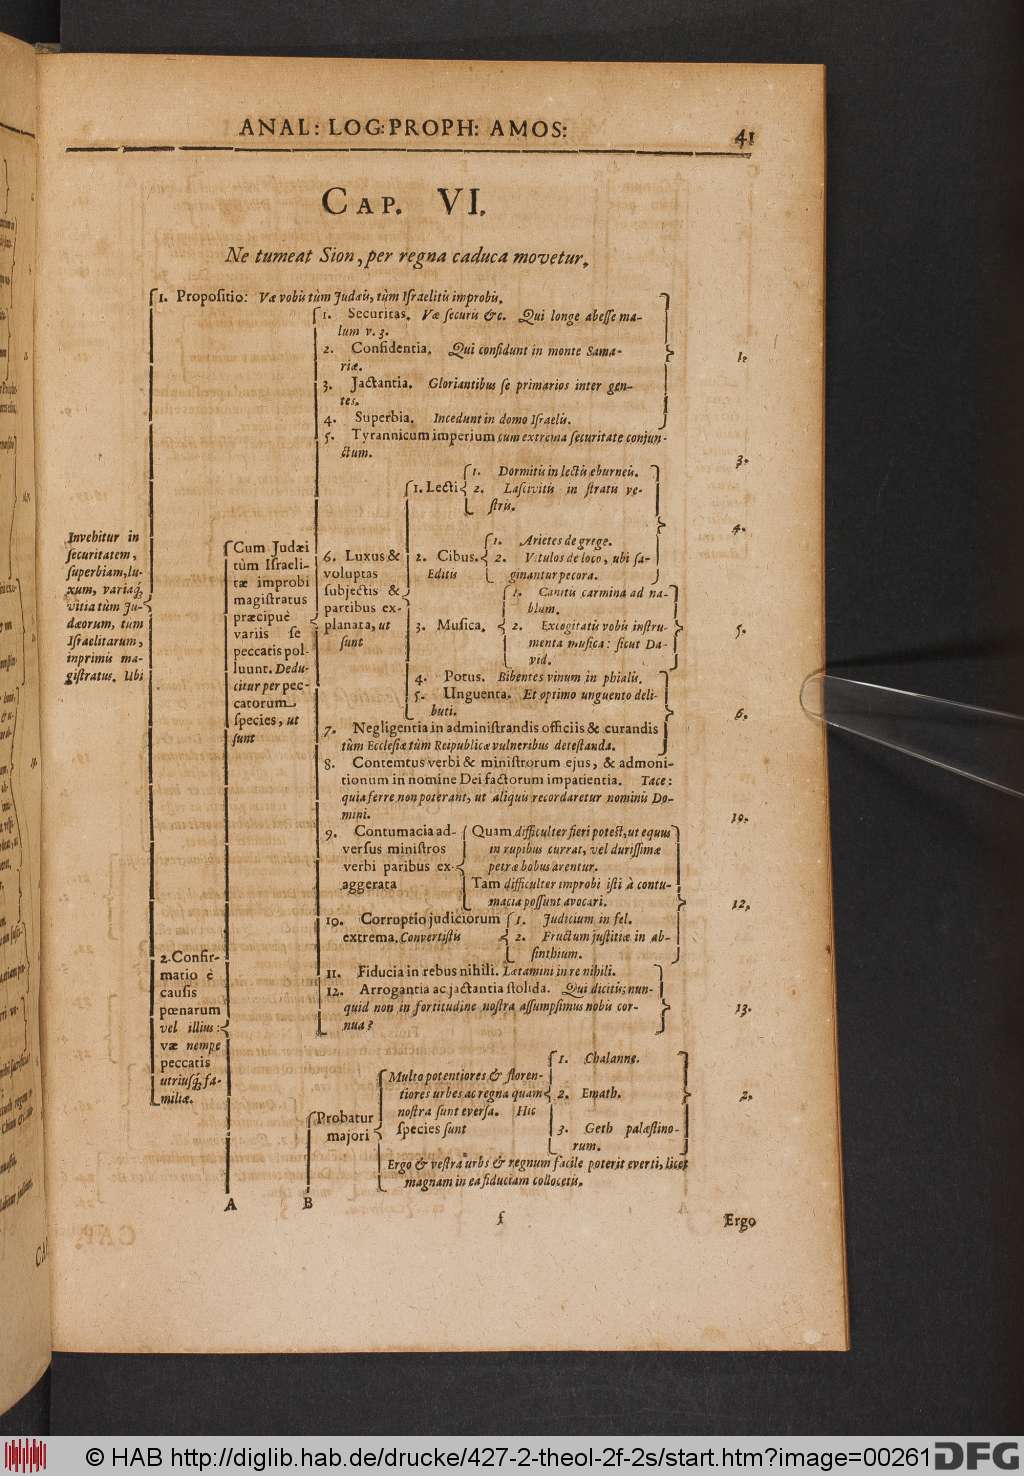 ANAL: LOG: PROPH: AMOS:
41
CAP. VI.
Ne tumeat Sion, per regna caduca movetur.
1. Propositio: Væ vobis tùm Judæis, tùm Israelitis improbis.
1. Securitas. Væ securis &c. Qui longe abesse ma-
lum v. 3.
2. Confidentia. Qui confidunt in monte Sama-
riæ.
1.
3. Jactantia. Gloriantibus se primarios inter gen-
tes.
4. Superbia. Incedunt in domo Israelis.
5. Tyrannicum imperium cum extrema securitate conjun-
ctum.
3.
Invehitur in
securitatem,
superbiam, lu-
xum, variaq;
vitia tùm Ju-
dæorum, tum
Israelitarum,
inprimis ma-
gistratus. Ubi
Cum Judæi
tùm Israeli-
tæ improbi
magistratus
præcipuè
variis se
peccatis pol-
luunt. Dedu-
citur per pec-
catorum
species, ut
sunt
6. Luxus &
voluptas
subjectis &
partibus ex-
planata, ut
sunt
1. Lecti
1. Dormitis in lectis eburneis.
2. Lascivitis in stratis ve-
stris.
4.
2. Cibus.
Editis
1. Arietes de grege.
2. Vitulos de loco, ubi sa-
ginantur pecora.
3. Musica.
1. Canitis carmina ad na-
blum.
2. Excogitatis vobis instru-
menta musica: sicut Da-
vid.
5.
4. Potus. Bibentes vinum in phialis.
5. Unguenta. Et optimo unguento deli-
buti.
6.
7. Negligentia in administrandis officiis & curandis
tùm Ecclesiæ tùm Reipublicæ vulneribus detestanda.
8. Contemtus verbi & ministrorum ejus, & admoni-
tionum in nomine Dei factorum impatientia. Tace:
quia ferre non poterant, ut aliquis recordaretur nominis Do-
mini.
10.
9. Contumacia ad-
versus ministros
verbi paribus ex-
aggerata
Quam difficulter fieri potest, ut equus
in rupibus currat, vel durissimæ
petræ bobus arentur.
Tam difficulter improbi isti à contu-
macia possunt avocari.
12.
10. Corruptio judiciorum
extrema. Convertistis
1. Judicium in fel.
2. Fructum justitiæ in ab-
sinthium.
11. Fiducia in rebus nihili. Lætamini in re nihili.
12. Arrogantia ac jactantia stolida. Qui dicitis; nun-
quid non in fortitudine nostra assumpsimus nobis cor-
nua?
13.
2. Confir-
matio è
causis
pœnarum
vel illius:
væ nempe
peccatis
utriusq; fa-
miliæ.
Probatur
majori
Multo potentiores & floren-
tiores urbes ac regna quam
nostra sunt eversa. Hic
species sunt
1. Chalanne.
2. Emath.
3. Geth palæstino-
rum.
2.
Ergo & vestra urbs & regnum facile poterit everti, licet
magnam in ea fiduciam collocetis.
A
B
f
Ergo
© HAB http://diglib.hab.de/drucke/427-2-theol-2f-2s/start.htm?image=00261
DFG